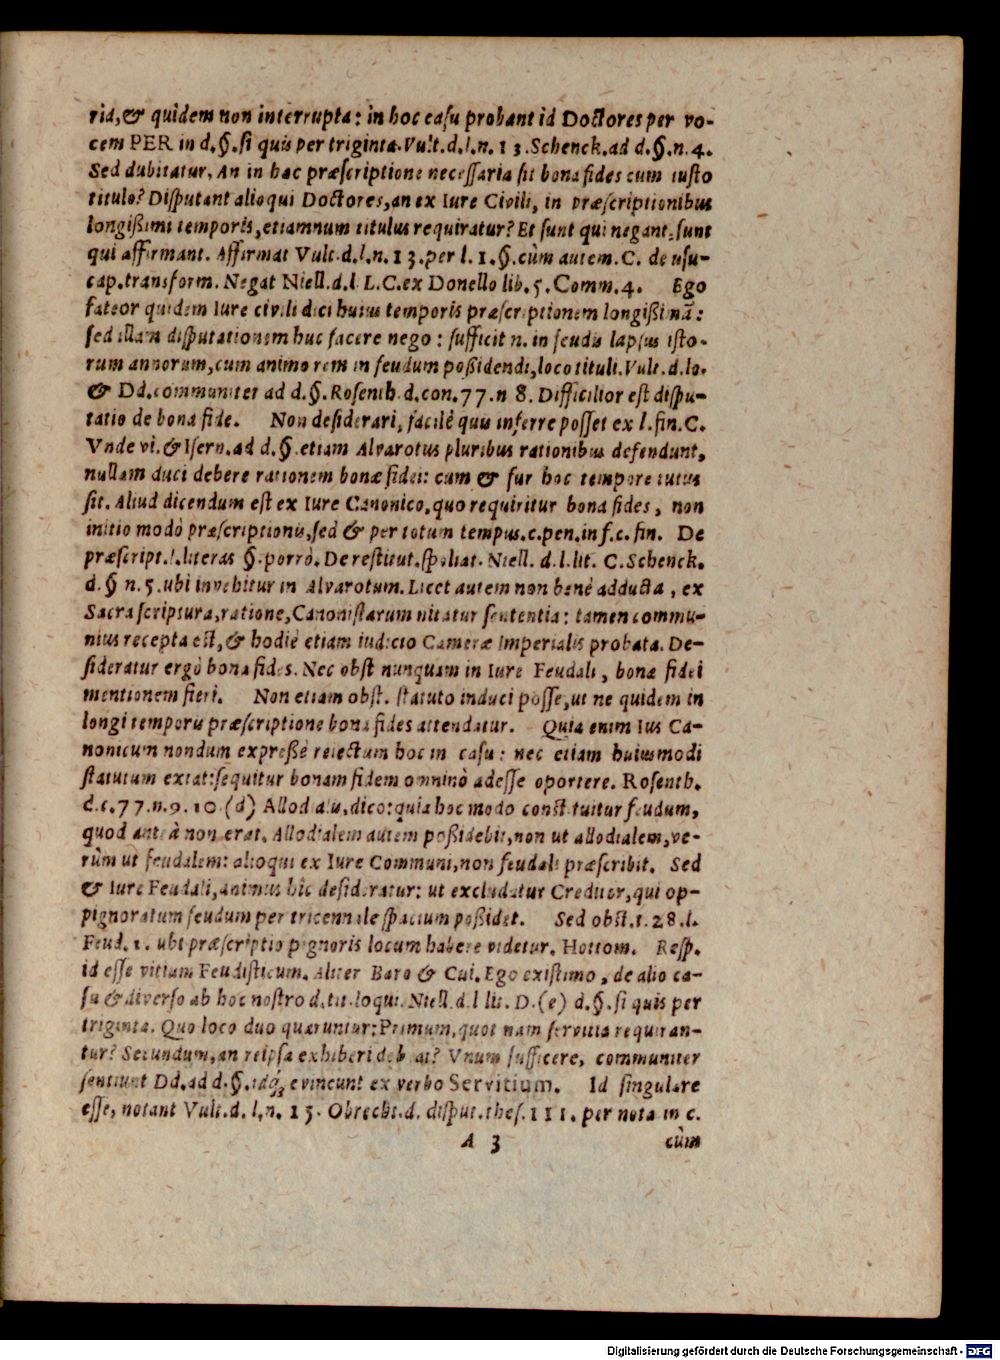 ria, & quidem non interrupta: in hoc casu probant id Doctores per vo-
cem PER in d.§. si quis per triginta. Vult. d. l. n. 13. Schenck. ad d.§. n. 4.
Sed dubitatur, An in hac præscriptione necessaria sit bona fides cum iusto
titulo? Disputant alioqui Doctores, an ex Iure Civili, in præscriptionibus
longißimi temporis, etiamnum titulus requiratur? Et sunt qui negant, sunt
qui affirmant. Affirmat Vult. d. l. n. 13. per l. 1. §. cùm autem. C. de usu-
cap. transform. Negat Niell. d. l. L. C. ex Donello lib. 5. Comm. 4. Ego
fateor quidem Iure civili dici huius temporis præscriptionem longißimã:
sed illam disputationem huc facere nego: sufficit n. in feudis lapsus isto-
rum annorum, cum animo rem in feudum poßidendi, loco tituli. Vult. d. lo.
& Dd. communiter ad d. §. Rosenth. d. con. 77. n 8. Difficilior est dispu-
tatio de bona fide. Non desiderari, facilè quis inferre posset ex l. fin. C.
Vnde vi. & Isern. ad d. §. etiam Alvarotus pluribus rationibus defendunt,
nullam duci debere rationem bonæ fidei: cum & fur hoc tempore tutus
sit. Aliud dicendum est ex Iure Canonico, quo requiritur bona fides, non
initio modò præscriptionis, sed & per totum tempus. c. pen. in f. c. fin. De
præscript. l. literas §. porrò. De restitut. spoliat. Niell. d. l. lit. C. Schenck.
d. § n. 5. ubi invehitur in Alvarotum. Licet autem non benè adducta, ex
Sacra scriptura, ratione, Canonistarum nitatur sententia: tamen commu-
nius recepta est, & hodiè etiam iudicio Cameræ Imperialis probata. De-
sideratur ergò bona fides. Nec obst nunquam in Iure Feudali, bonæ fidei
mentionem fieri. Non etiam obst. statuto induci posse, ut ne quidem in
longi temporis præscriptione bona fides attendatur. Quia enim Ius Ca-
nonicum nondum expreßè reiectum hoc in casu: nec etiam huiusmodi
statutum extat: sequitur bonam fidem omninò adesse oportere. Rosenth.
d. c. 77. n. 9. 10 (d) Allodialis, dico: quia hoc modo constituitur feudum,
quod anteà non erat. Allodialem autem poßidebit, non ut allodialem, ve-
rùm ut feudalem: alioqui ex Iure Communi, non feudali præscribit. Sed
& Iure Feudali, animus hîc desideratur: ut excludatur Creditor, qui op-
pignoratum feudum per tricennale spacium poßidet. Sed obst. t. 28. l.
Feud. 1. ubi præscriptio pignoris locum habere videtur. Hottom. Resp.
id esse vitium Feudisticum. Aliter Baro & Cui. Ego existimo, de alio ca-
su & diverso ab hoc nostro d. tit. loqui. Niell. d. l lit. D. (e) d. §. si quis per
triginta. Quo loco duo quæruntur: Primum, quot nam servitia requiran-
tur? Secundum, an reipsa exhiberi debeat? Vnum sufficere, communiter
sentiunt Dd. ad d. §. idq́; evincunt ex verbo Servitium. Id singulare
esse, notant Vult. d. l. n. 15. Obrecht. d. disput. thes. 111. per nota in c.
A 3 cùm
Digitalisierung gefördert durch die Deutsche Forschungsgemeinschaft - DFG